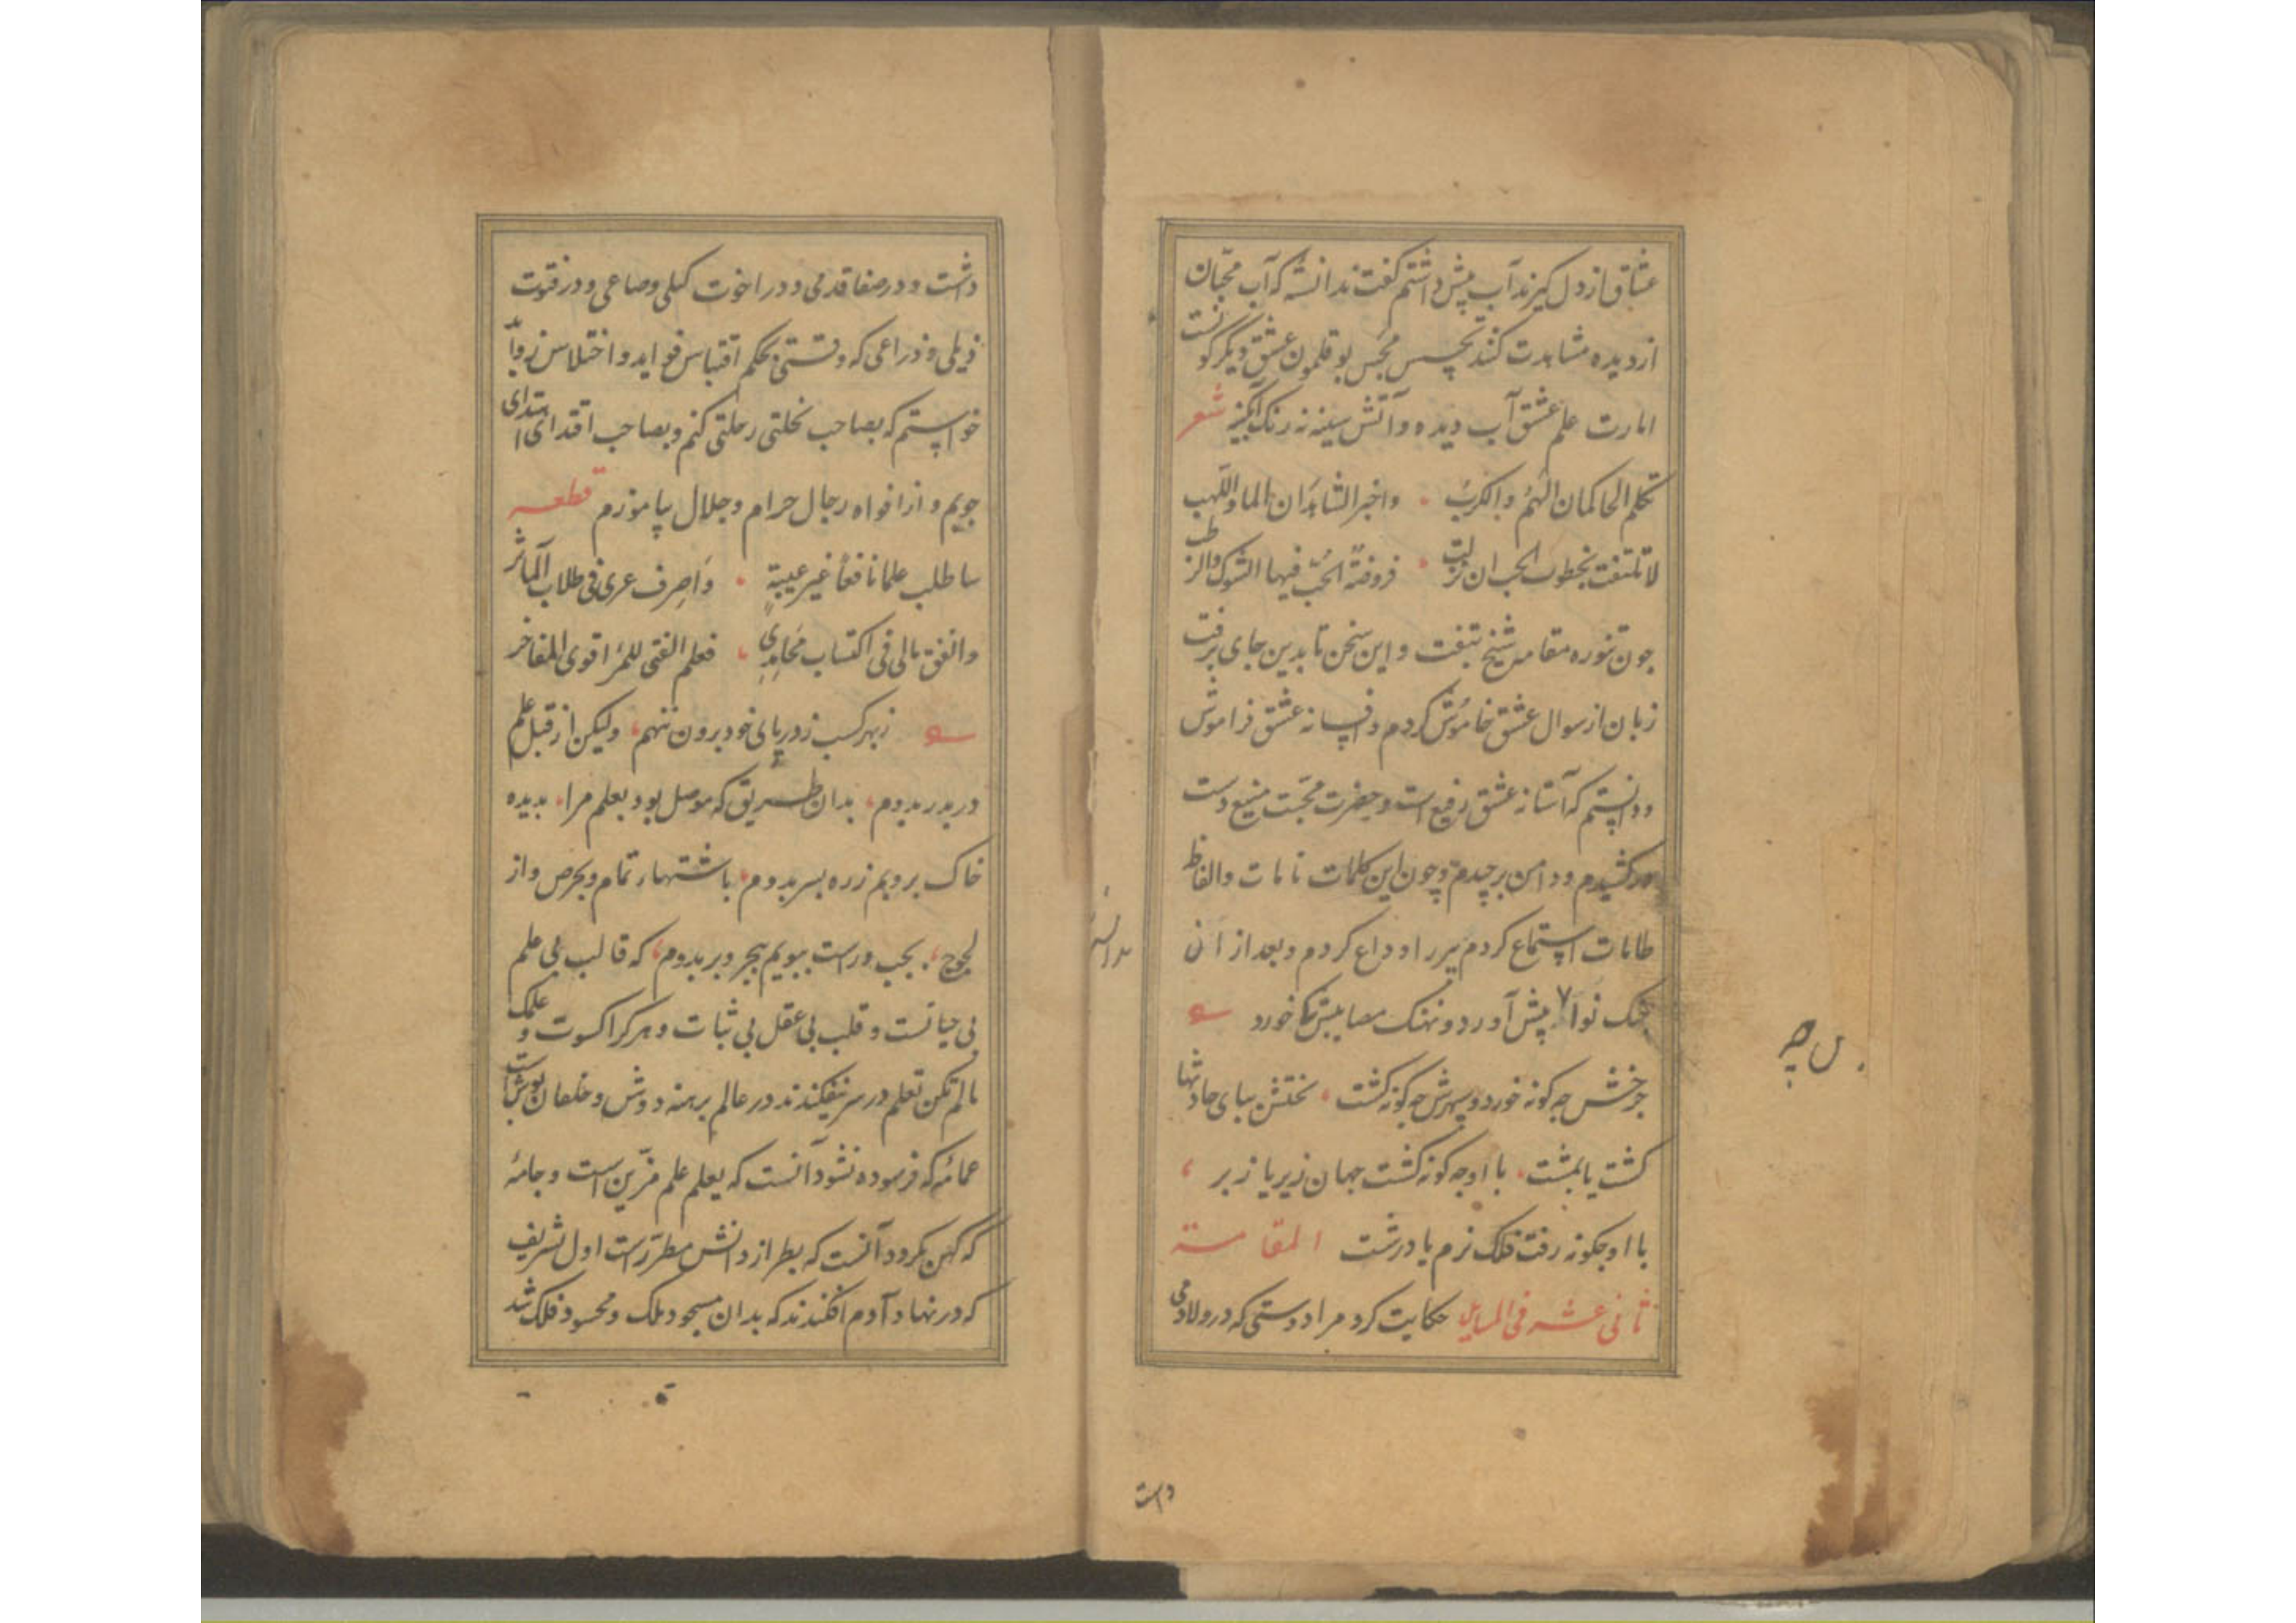 عشاق از دل گیرند آب پیش داشتم گفت ندانسته که آب محبّان
از دیده مشاهدت کنند بچسس مجس بوقلمون عشق دیگرگونست
امارت علم عشق آب دیده و آتش سینه نه رنگ آبگینه شعر
تکلم الحاکمان الهمُ والکربُ واخبر الشاهدان الما واللهب
لا تلتفت بخطوب الحب ان نزلت فروضة الحُبّ فیها الشوک والرطب
چون تنوره مقامس شیخ بتفت و این سخن تا بدین جای برفت
زبان از سوال عشق خاموش کردم و افسانه عشق فراموش
و دانستم که آستانه عشق رفیع است و حضرت محبّت منیع دست
درکشیدم و دامن برچیدم و چون این کلمات تامات و الفاظ
طامات استماع کردم پیر را وداع کردم و بعد از آن
نوا پیش آورد و نهنک مصایبش کجا خورد
چرخش چه کونه خورد و سپهرش چه کونه کشت بختش بپای حادثها
کشت یا بمشت با او چه کونه کشت جهان زیر یا زبر
با او چکونه رفت فلک نرم یا درشت المقامة
ثانی عشر فی المسایل حکایت کرد مرا دوستی که در ولا دمی
داشت
داشت و در صفا قدمی و در اخوت کیلی و صاعی و در فتوت
ذیلی و ذراعی که وقتی بحکم اقتباس فواید و اختلاس زواید
خواستم که بصاحب نحلتی رحلتی کنم و بصاحب اقتدائی ابتدای
جویم و از افواه رجال حرام و حلال بیاموزم قطعه
ساطلب علما نافعاً غیر عیبة وَاصرِف عمری فی طلاب المآثر
وانفق مالی فی اکتساب مَحَامِدِی فعلم الفتی للمرء اقوی المفاخر
زبهر کسب ز در پای خود برون ننهم ولیکن از قبل علم
در بدر بدوم بدان طریق که موصل بود بعلم مرا بدیده
خاک بروبم زره بسر بدوم باشتهاء تمام و بحرص و از
لجوج بچپ و راست بپویم ببحر و بر بدوم که قالب بی علم
بی حیاتست و قلب بی عقل بی ثبات و هر کرا کسوت و علمک
مالم تکن تعلم در سر نیفکندند در عالم برهنه دوش و خلقان پوش است
عمامهٔ که فرسوده نشود آنست که بعلم علم مزّین است و جامهٔ
که کهن نکردد آنست که بطراز دانش مطرّزست اول تشریف
که در نهاد آدم افکندند که بدان مسجود ملک و محسود فلک شد